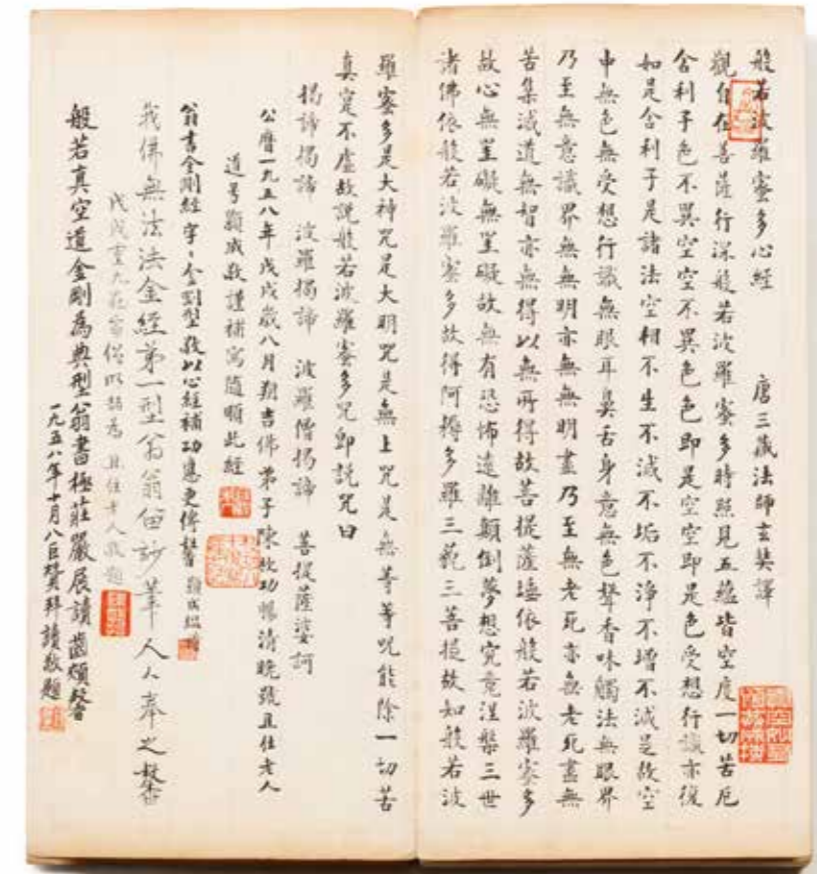 般若波羅蜜多心經 唐三藏法師玄奘譯
觀自在菩薩行深般若波羅蜜多時照見五蘊皆空度一切苦厄
舍利子色不異空空不異色色即是空空即是色受想行識亦復
如是舍利子是諸法空相不生不滅不垢不淨不增不減是故空
中無色無受想行識無眼耳鼻舌身意無色聲香味觸法無眼界
乃至無意識界無無明亦無無明盡乃至無老死亦無老死盡無
苦集滅道無智亦無得以無所得故菩提薩埵依般若波羅蜜多
故心無罣礙無罣礙故無有恐怖遠離顛倒夢想究竟涅槃三世
諸佛依般若波羅蜜多故得阿耨多羅三藐三菩提故知般若波
羅蜜多是大神咒是大明咒是無上咒是無等等呪能除一切苦
真寔不虛故説般若波羅蜜多咒即説咒曰
揭諦揭諦 波羅揭諦 波羅僧揭諦 菩提薩婆訶
公曆一九五八年戊戌歲八月朔吉佛弟子陳敕功暢清晚號且住老人
道号顥成敬謹補寫隨順此經
翁書金剛經字字金剛型我以心經補功應更傳馨顥成
我佛無法法金經第一型翁翁留妙筆人人奉之馨
戊戌重九
且住老人敬題
般若真空道金剛為典型翁書極莊嚴展讀齒頰馨
一九五八年十月八巨贊拜讀敬題